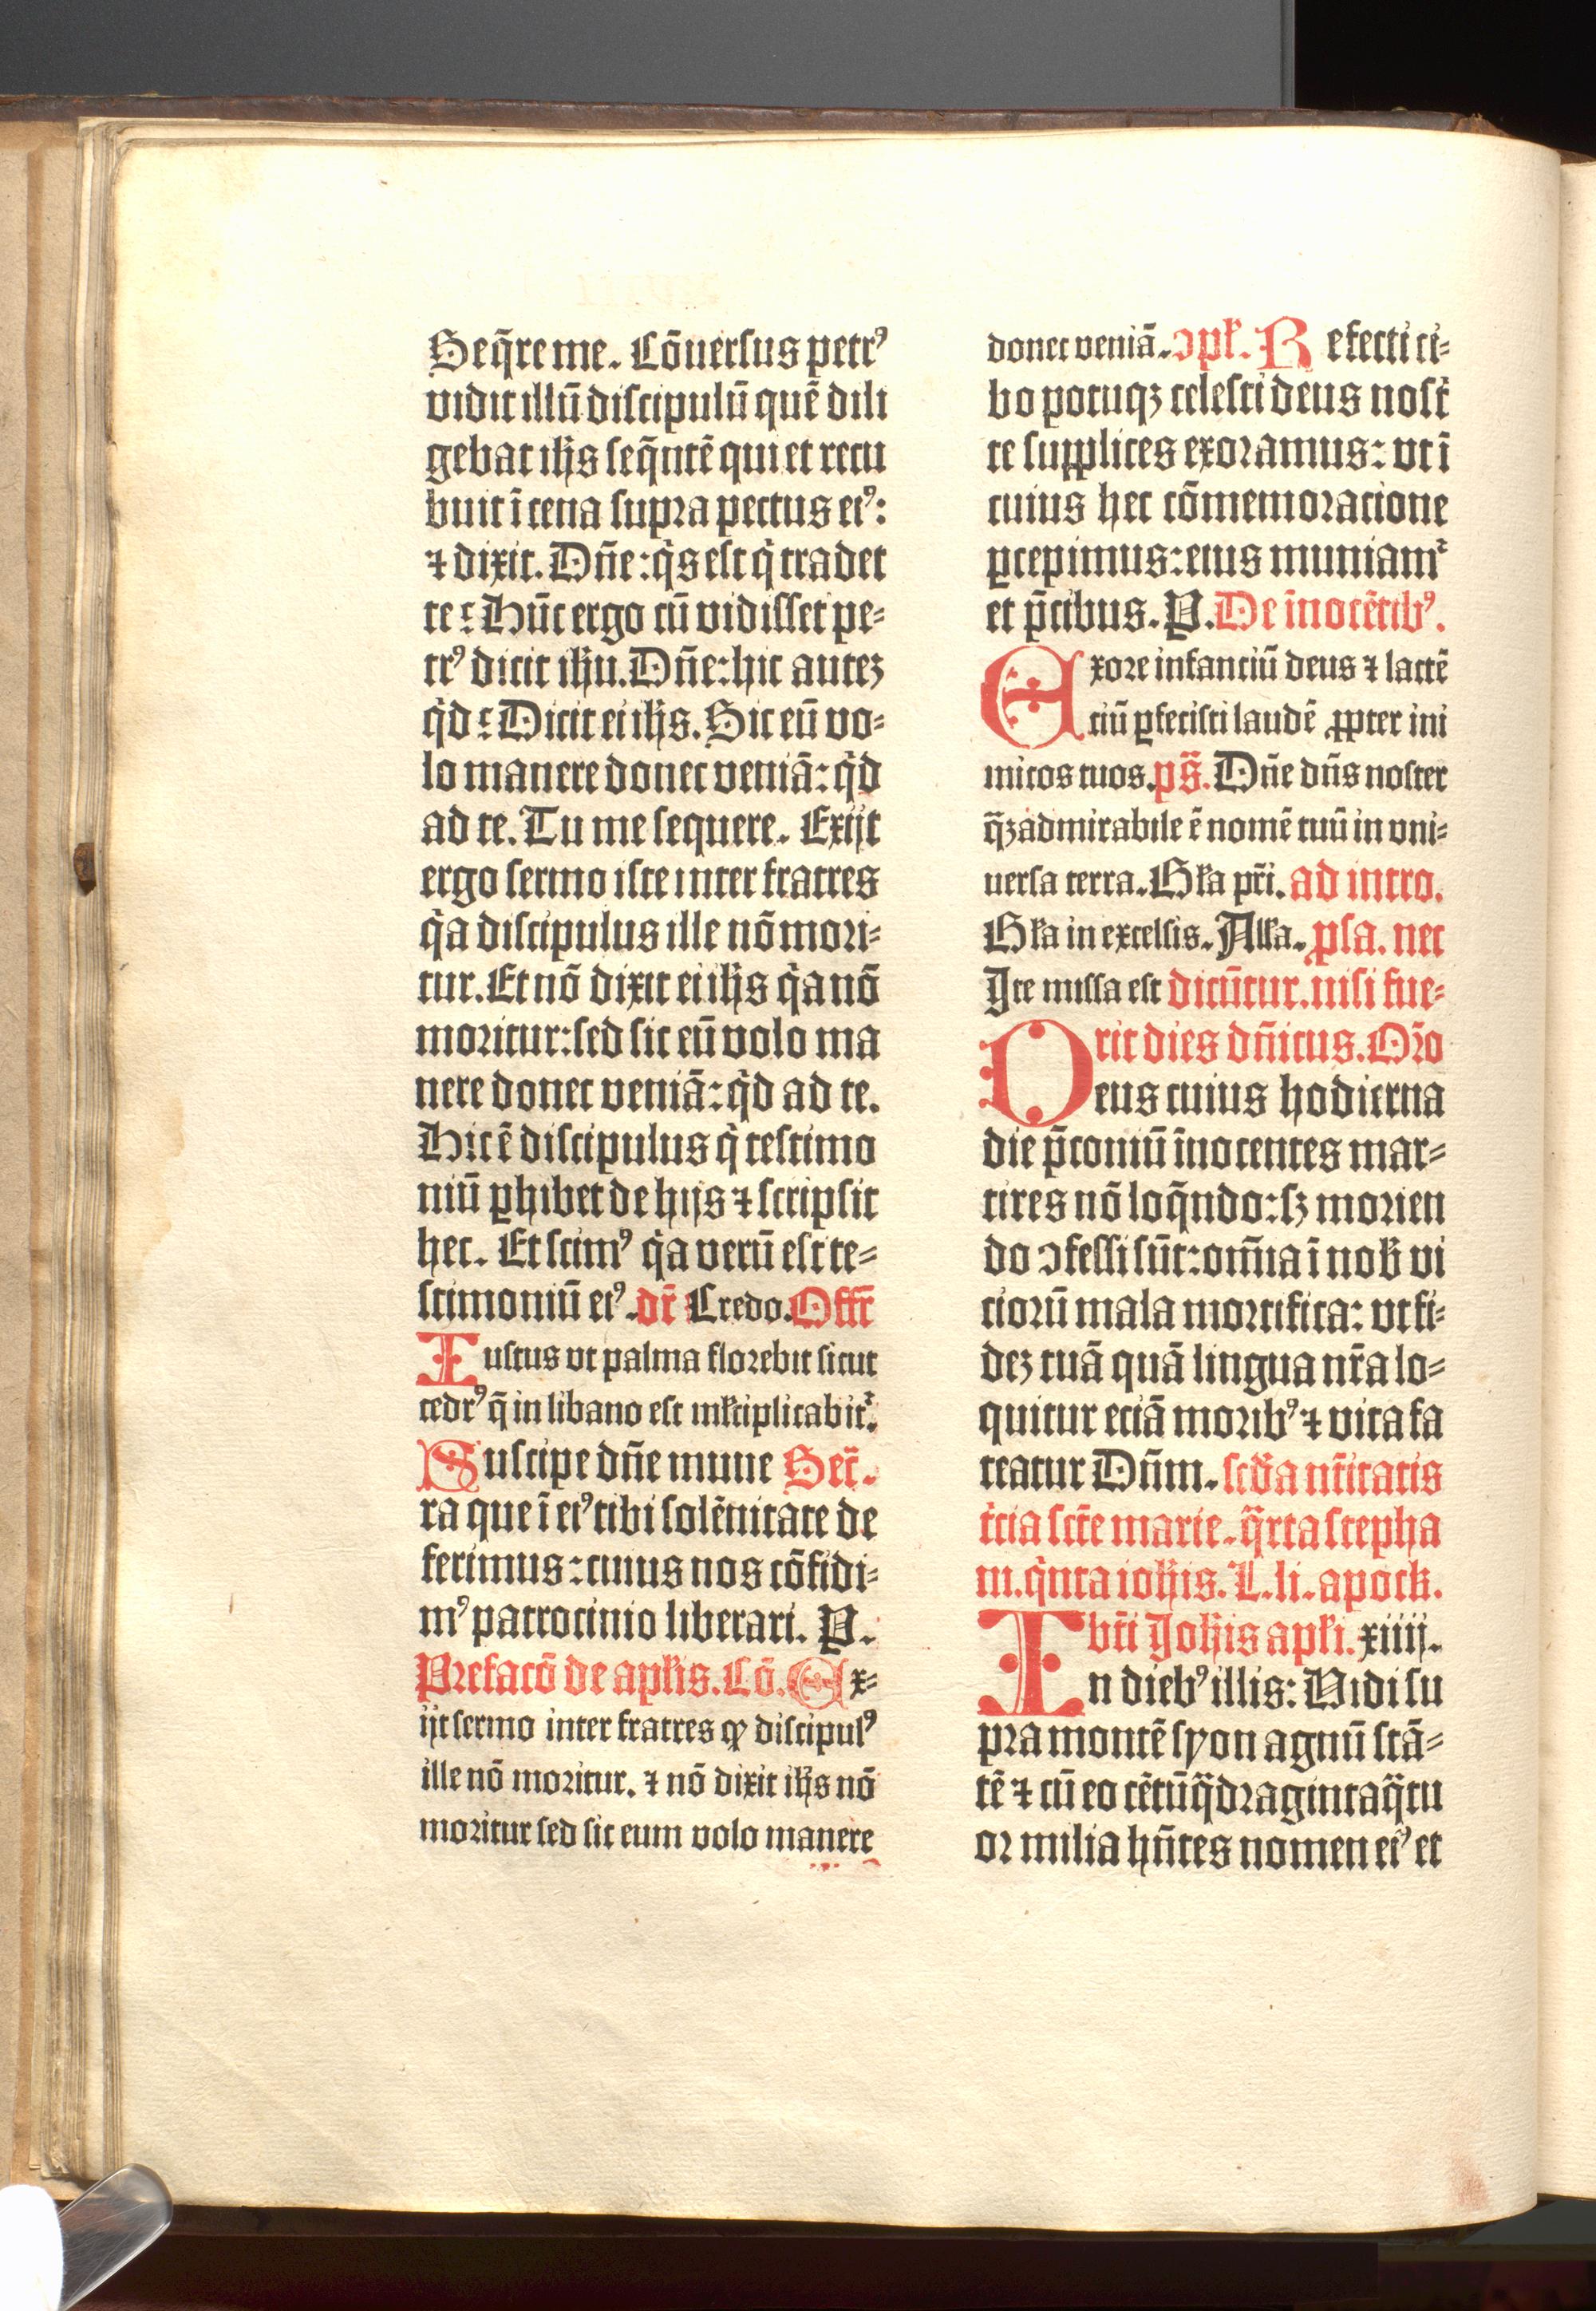 Seq̄re me. Cōuersus petrꝰ
vidit illū discipulū quē dili
gebat ihs̄ seq̄ntē qui et recu
buit ī cena supra pectus eiꝰ:
⁊ dixit. Dn̄e: q̇s est q̇ tradet
te: Hūc ergo cū vidisset pe-
trꝰ dicit ihū. Dn̄e: hic autez
q̇d: Dicit ei ihs̄. Sic eū vo-
lo manere donec veniā: q̇d
ad te. Tu me sequere. Exijt
ergo sermo iste inter fratres
q̇a discipulus ille nō mori-
tur. Et nō dixit ei ihs̄ q̇a nō
moritur: sed sic eū volo ma
nere donec veniā: q̇d ad te.
Hic ē discipulus q̇ testimo
niū ꝑhibet de hijs ⁊ scripsit
hec. Et scimꝰ q̇a verū est te-
stimoniū eiꝰ. dr̄ Credo. Offr̄
Iustus vt palma florebit sicut
cedrꝰ q̄ in libano est mĺtiplicabit᷑.
Suscipe dn̄e mune Secr̄.
ra que ī eiꝰ tibi solēnitate de
ferimus: cuius nos cōfidi-
mꝰ patrocinio liberari. P.
Prefacō de apĺis. Cō. Ex-
ijt sermo inter fratres ꝙ discipulꝰ
ille nō moritur. ⁊ nō dixit ihs̄ nō
moritur sed sic eum volo manere
donec veniā. ↄpĺ. Refecti ci-
bo potuqꝫ celesti deus nost̄
te supplices exoramus: vt ī
cuius hec cōmemoracione
ꝑcepimus: eius muniam᷑
et p̄cibus. P. De īnocētibꝰ.
Exore infanciū deus ⁊ lactē
ciū ꝑfecisti laudē ꝓpter ini
micos tuos. ps̄. Dn̄e dn̄s noster
q̄ꝫ admirabile ē nomē tuū in vni-
uersa terra. Gĺa pr̄i. ad intro.
Gĺa in excelsis. Alĺa. ꝓsa. nec
Ite missa est dicūtur. nisi fue-
rit dies dn̄icus. Or̄o
Deus cuius hodierna
die p̄coniū īnocentes mar-
tires nō loq̄ndo: sꝫ morien
do ↄfessi sūt: om̄ia ī nob̄ vi
ciorū mala mortifica: vt fi-
dez tuā quā lingua nr̄a lo-
quitur eciā moribꝰ ⁊ vita fa
teatur Dn̄m. scd̄a nt̄itatis
t̄cia sct̄e marie. q̄rta stepha
ni. q̇nta ioh̄is. L. li. apock.
bt̄i Ioh̄is apĺi. xiiij.
In diebꝰ illis: Vidi su
pra montē syon agnū stā-
tē ⁊ cū eo cētū q̄draginta q̄tu
or milia hn̄tes nomen eiꝰ et